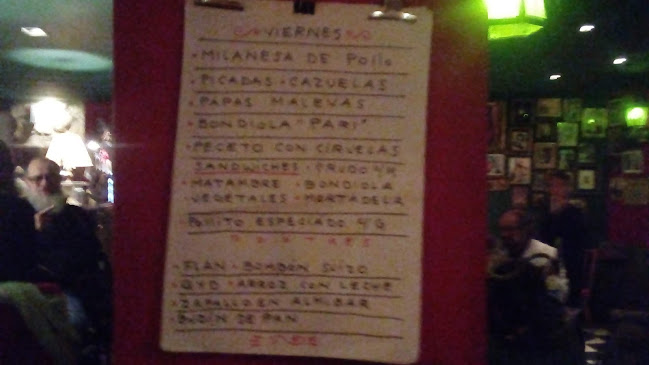 VIERNES
MILANESA DE POllo
PICADAS · CAZUELAS
PAPAS MALEVAS
BONDIOLA "PARI"
PECETO CON CIRUELAS
SANDWICHES · CRUDO Y Q
MATAMBRE · BONDIOLA
VEGETALES · MORTADELA
POllITO ESPECIADO
POSTRES
FLAN · BOMBÓN SUIZO
QYD · ARROZ CON LECHE
ZAPALLO EN ALMIBAR
BUDIN DE PAN